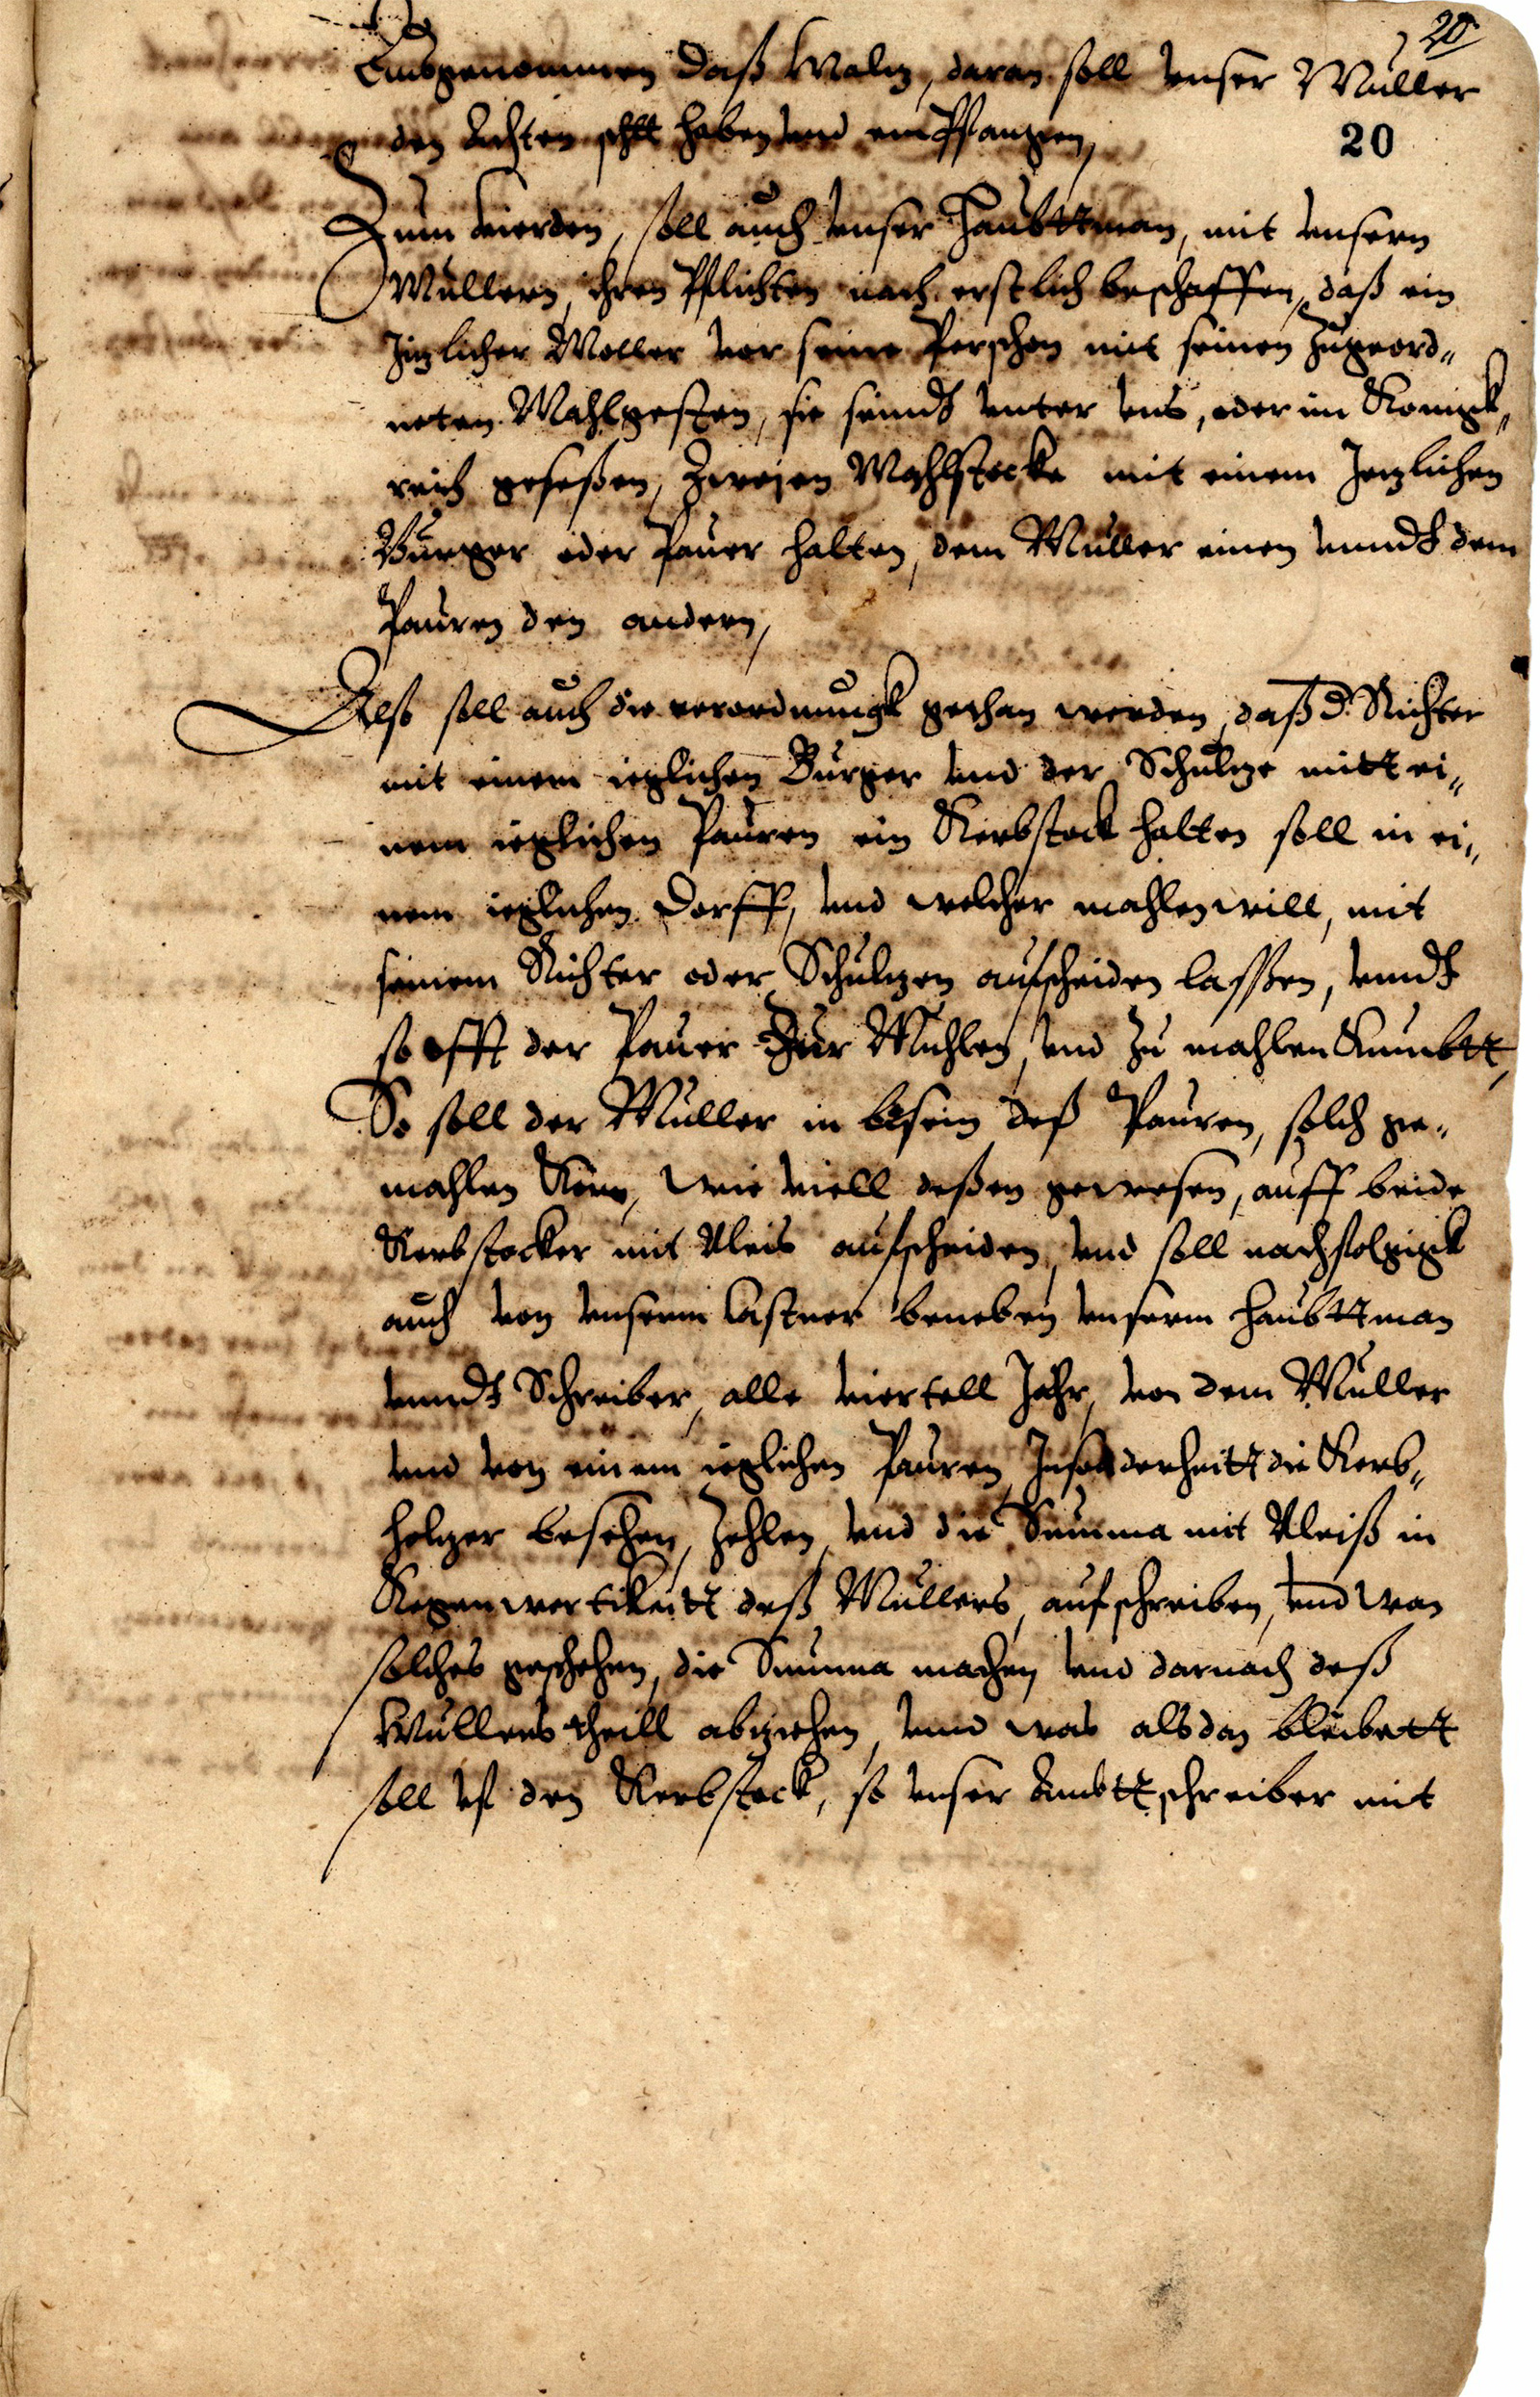 20.
Ausgenommen daß Maltz, daran soll vnser Müller
20
den Achten schtl haben vnd empfangen,
Zum vierden, soll auch vnser Haubttman, mit vnsern
Müllern, ihren Pflichten nach erstlich beschaffen, daß ein
Jtzlicher Moller vor seine Perschon mit seinen Zugeord„
neten Mahlgesten, sie seindt vnter vns, oder im Konigk„
reich geseßen, Zweien Mahlstocke mit einem Jetzlichen
Burger oder Pauer halten, dem Müller einen vnndt dem
Pauren den andern,
Also soll auch die verordnungk gethan werden, daß d. Richter
mit einem ieglichen Burger vnd der Schultze mitt ei„
nem ieglichen Pauren ein Kerbstock halten soll in ei„
nem ieglichen Dorff, vnd welcher mahlen will, mit
seinem Richter oder Schultzen aufscheiden lassen, vnndt
so offt der Pauer Zur Muhlen, vnd zu mahlen Kumbtt,
So soll der Müller in beisein deß Pauren, solch ge„
mahlen Korn, wie viell deßen gewesen, auff beide
Kerbstocker mit Vleis aufscheiden, vnd soll nachfolgigk
auch von vnserm Castner beneben vnserm Haubttman
vnndt Schreiber, alle viertell Jahr, von dem Müller
vnd von einem ieglichen Pauren Jnsonderheitt die Kerb„
holtzer besehen, Zehlen, vnd die Summa mit Vleiß in
Kegenwertikeitt deß Müllers, aufschreiben, vnd wan
solches geschehen, die Summa machen vnd darnach deß
Müllers theill abziehen, vnnd was alsdan bleibett
soll vf den Kerbstock, so vnser Ambttschreiber mit